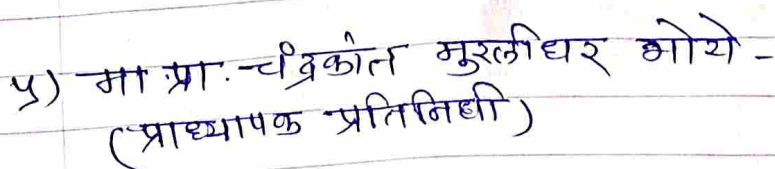 ५) मा.प्रा. चंद्रकांत मुरलीधर भोये -
(प्राध्यापक प्रतिनिधी)